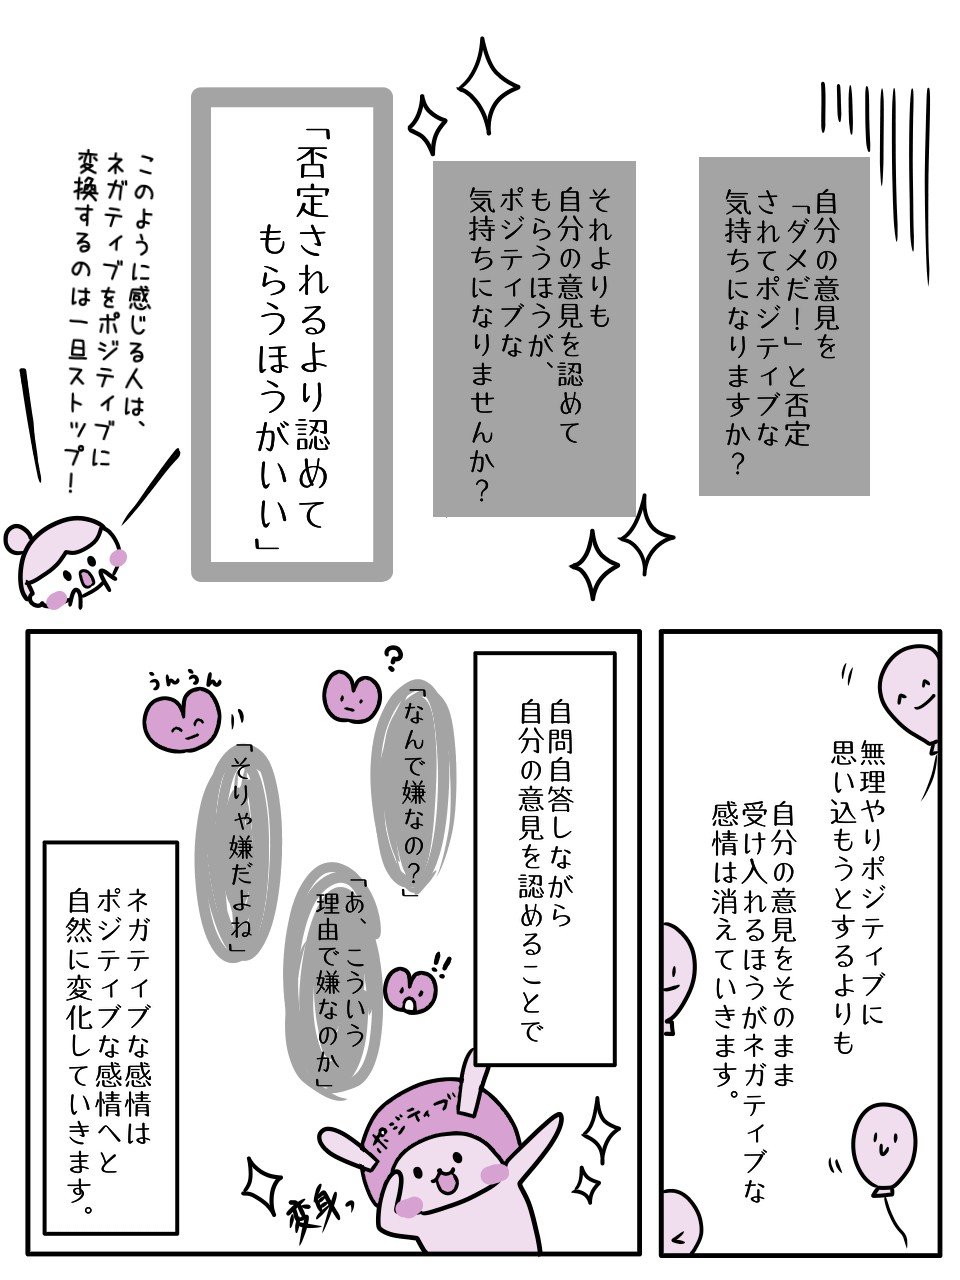 自分の意見を
「ダメだ！」と否定
されてポジティブな
気持ちになりますか？
それよりも
自分の意見を認めて
もらうほうが、
ポジティブな
気持ちになりませんか？
「否定されるより認めて
もらうほうがいい」
このように感じる人は、
ネガティブをポジティブに
変換するのは一旦ストップ！
無理やりポジティブに
思い込もうとするよりも
自分の意見をそのまま
受け入れるほうがネガティブな
感情は消えていきます。
自問自答しながら
自分の意見を認めることで
？
「なんで嫌なの？」
!!
「あ、こういう
理由で嫌なのか」
うんうん
「そりゃ嫌だよね」
ポジティブ
変身っ
ネガティブな感情は
ポジティブな感情へと
自然に変化していきます。